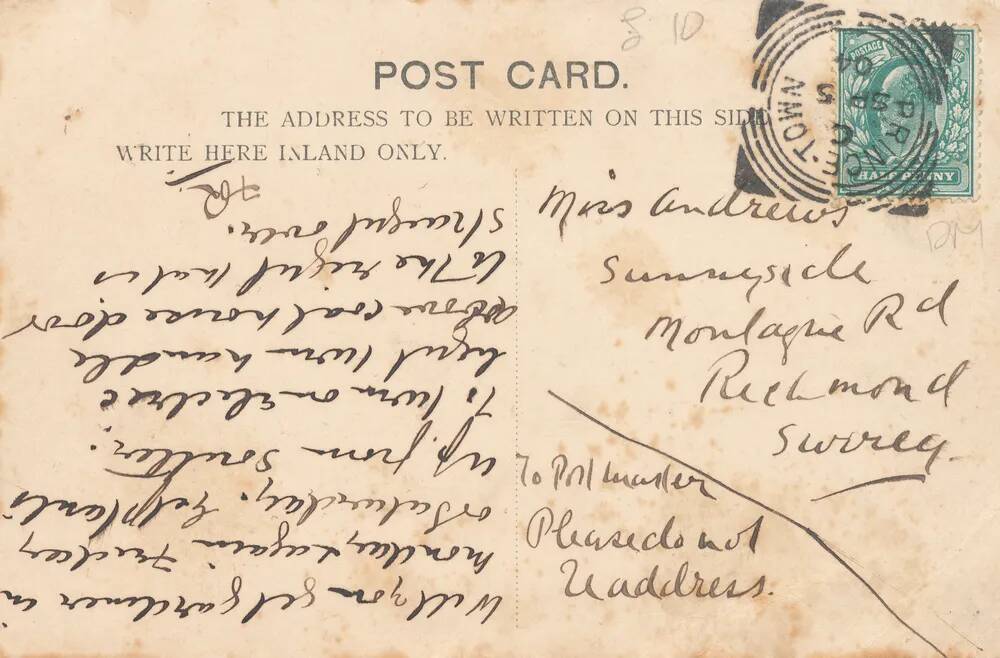 £ 10
POST CARD.
THE ADDRESS TO BE WRITTEN ON THIS SIDE
WRITE HERE INLAND ONLY.
POSTAGE
HALFPENNY
PRINCE·TOWN
C
SP 5
04
DM
Miss Andrews
Sunnyside
Montague Rd
Richmond
Surrey.
To Postmaster
Please do not
Readdress.
Will you get gardener in
Monday & again Friday
or Saturday. Get plants
up from
To turn on Electric
light turn handle
above coal house door
to the right that is
straight over.